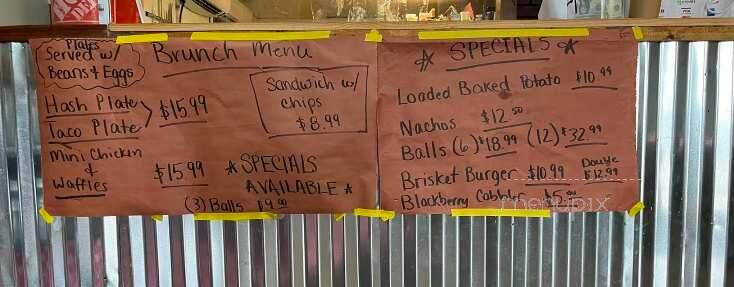 Plates
Served w/
Beans & Eggs
Brunch Menu
Hash Plate
Taco Plate
$15.99
Sandwich w/
chips
$8.99
Mini Chicken
&
Waffles
$15.99
*SPECIALS
AVAILABLE*
(3) Balls $9.00
* SPECIALS *
Loaded Baked Potato $10.99
Nachos $12.50
Balls (6) $18.99 (12) $32.99
Brisket Burger $10.99 Double $12.99
Blackberry Cobbler $5.00
menupix